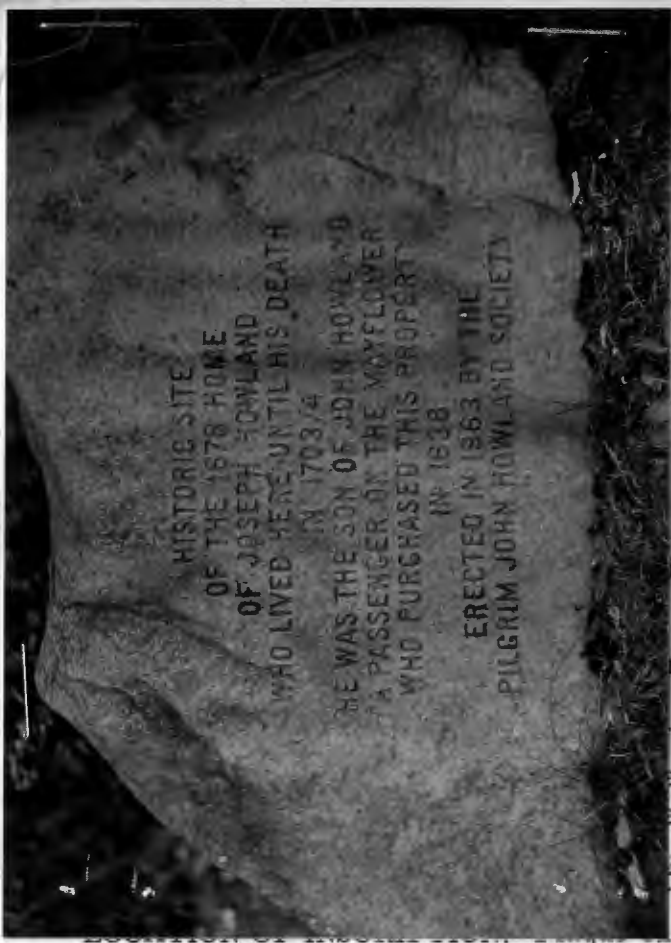 HISTORIC SITE
OF THE 1678 HOME
OF JOSEPH HOWLAND
WHO LIVED HERE UNTIL HIS DEATH
IN 1703/4
HE WAS THE SON OF JOHN HOWLAND
A PASSENGER ON THE MAYFLOWER
WHO PURCHASED THIS PROPERTY
IN 1638
ERECTED IN 1963 BY THE
PILGRIM JOHN HOWLAND SOCIETY